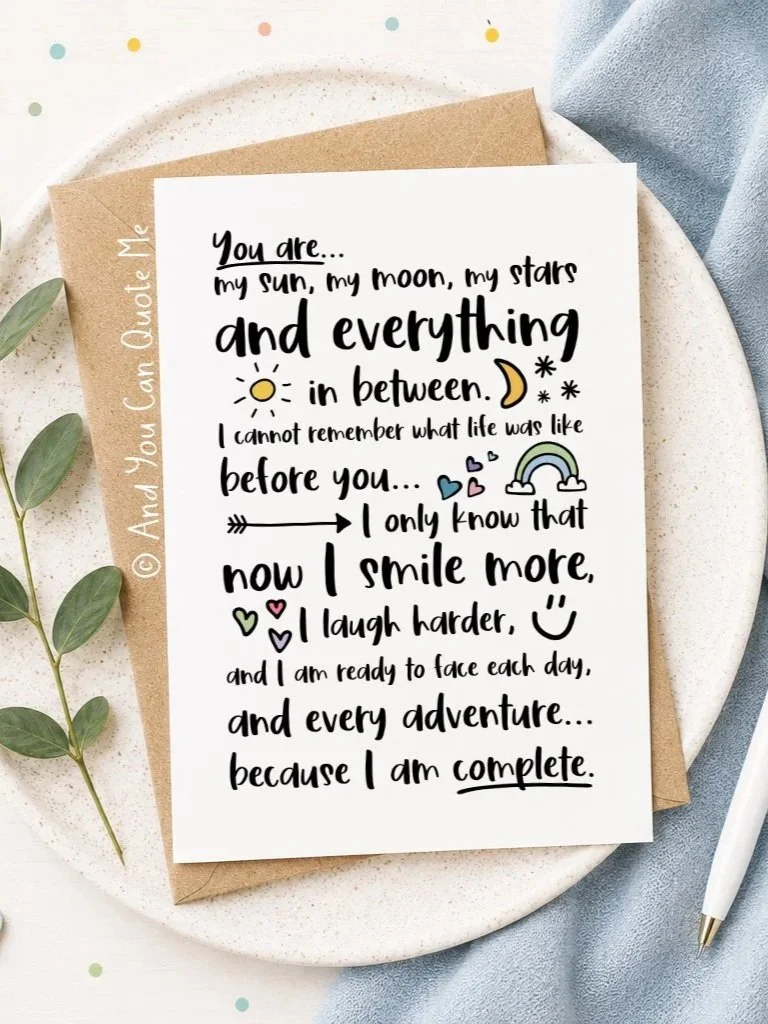 You are...
my sun, my moon, my stars
and everything
in between.
I cannot remember what life was like
before you...
I only know that
now I smile more,
I laugh harder,
and I am ready to face each day,
and every adventure...
because I am complete.
© And You Can Quote Me